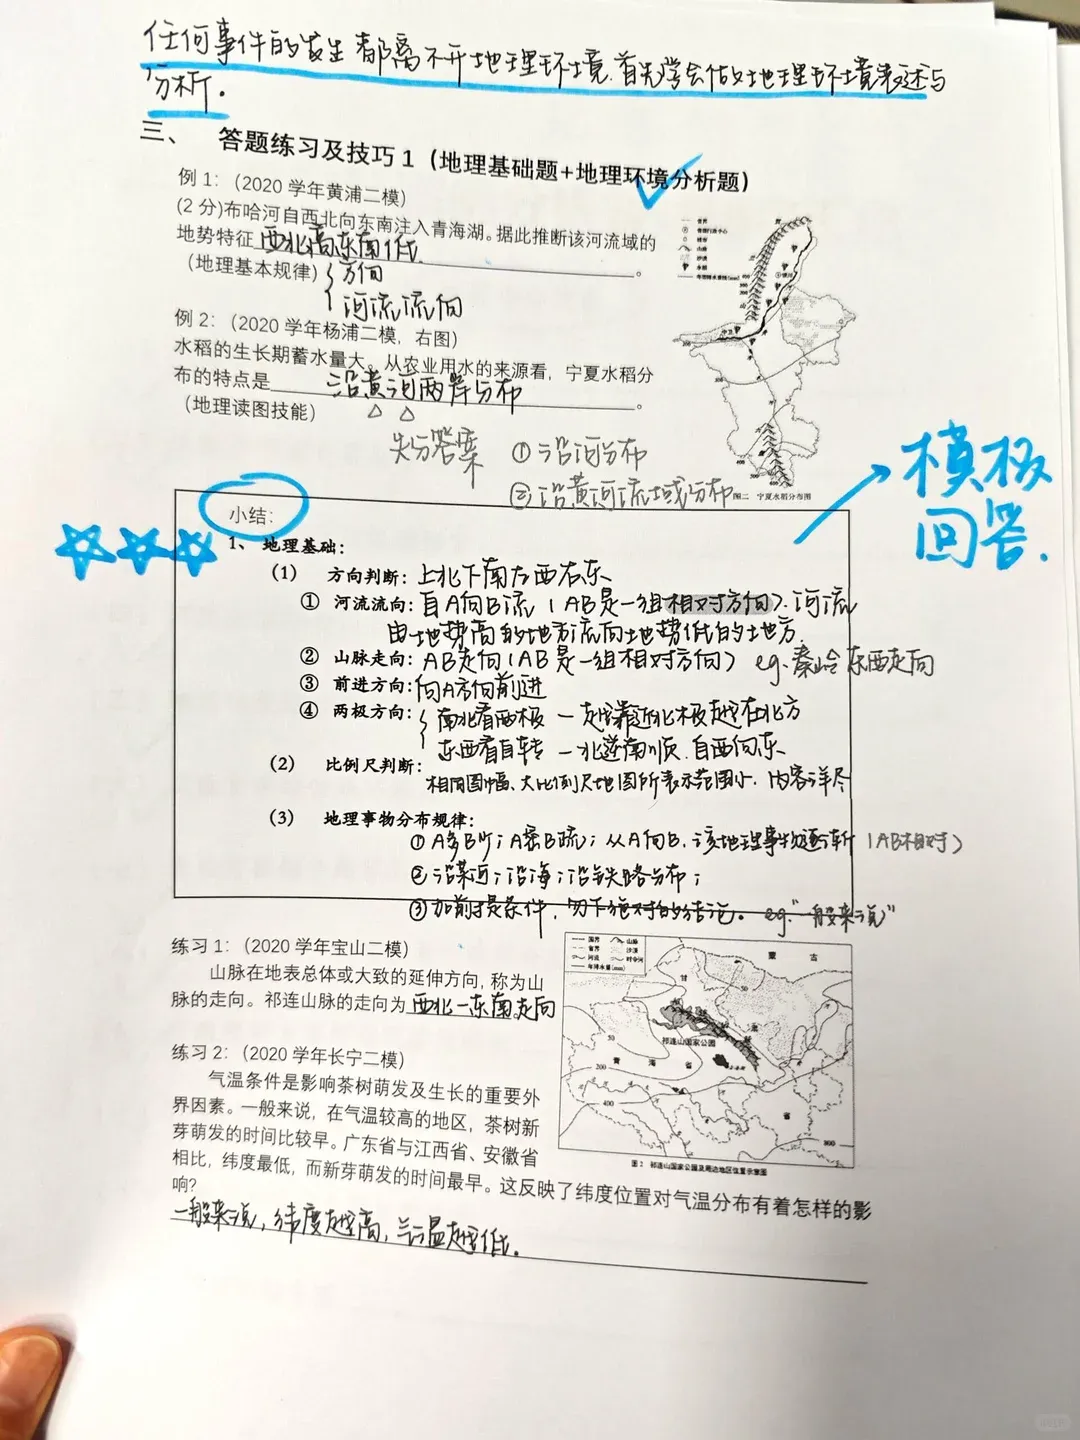 任何事件的发生都离不开地理环境,首先学会做好地理环境表述与
分析.
三、 答题练习及技巧1（地理基础题+地理环境分析题）
例1:（2020学年黄浦二模）
(2分)布哈河自西北向东南注入青海湖。据此推断该河流域的
地势特征 西北高东南低 。
（地理基本规律） 方向
河流流向
例2:（2020学年杨浦二模，右图）
水稻的生长期蓄水量大。从农业用水的来源看，宁夏水稻分
布的特点是 沿黄河两岸分布 。
（地理读图技能）
失分答案 ①沿河分布
②沿黄河流域分布
图二 宁夏水稻分布图
模板
回答.
小结:
1、 地理基础:
(1) 方向判断: 上北下南左西右东
① 河流流向: 自A向B流（AB是一组相对方向）.河流
由地势高的地方流向地势低的地方.
② 山脉走向: AB走向（AB是一组相对方向） eg.秦岭东西走向
③ 前进方向: 向A方向前进
④ 两极方向: 南北看两极 — 越靠近北极越在北方
东西看自转 — 北逆南顺.自西向东
(2) 比例尺判断: 相同图幅、大比例尺地图所表示范围小.内容详尽
(3) 地理事物分布规律:
①A多B少；A密B疏；从A向B,该地理事物逐渐（AB相对）
②沿某河；沿海；沿铁路分布；
③加前提条件，勿下绝对的结论。eg."一般来说"
练习1:（2020学年宝山二模）
山脉在地表总体或大致的延伸方向，称为山
脉的走向。祁连山脉的走向为 西北—东南走向
祁连山国家公园
图2 祁连山国家公园及周边地区位置示意图
练习2:（2020学年长宁二模）
气温条件是影响茶树萌发及生长的重要外
界因素。一般来说，在气温较高的地区，茶树新
芽萌发的时间比较早。广东省与江西省、安徽省
相比，纬度最低，而新芽萌发的时间最早。这反映了纬度位置对气温分布有着怎样的影
响？
一般来说，纬度越高，气温越低.